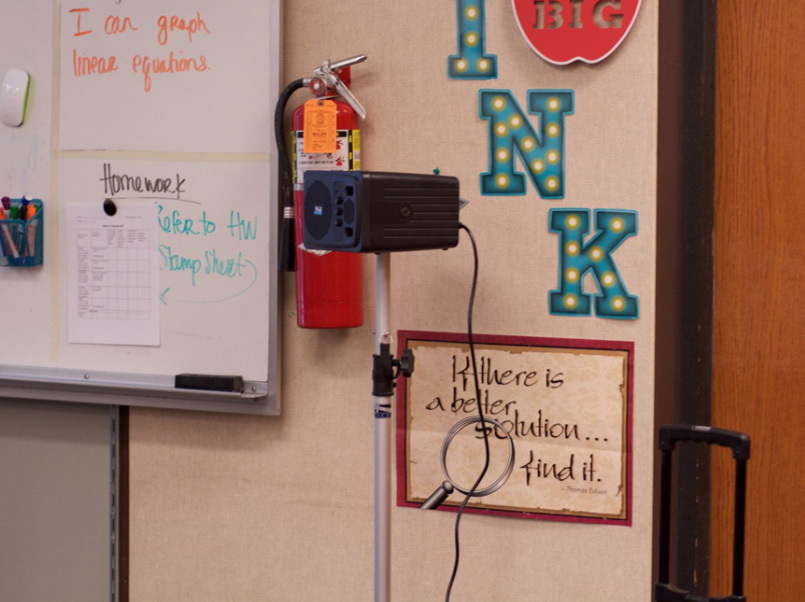 I can graph
linear equations.
Homework
Refer to HW
Stamp Sheet
I
N
K
BIG
If there is
a better
solution...
find it.
- Thomas Edison